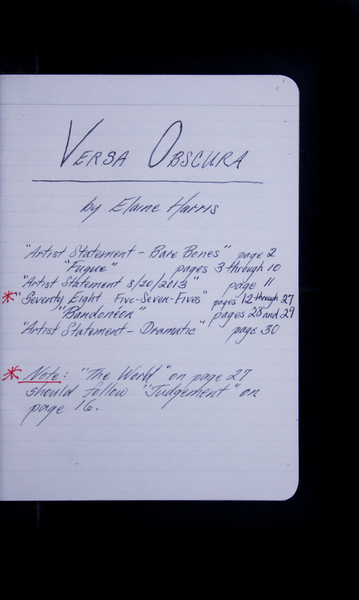 VERSA OBSCURA
by Elaine Harris
"Artist Statement - Bare Bones" page 2
"Fugue" pages 3 through 10
"Artist Statement 8/20/2013" page 11
* "Seventy Eight Five-Seven-Fives" pages 12 through 27
"Bandoneon" pages 28 and 29
"Artist Statement - Dramatic" page 30
* Note: "The World" on page 27
should follow "Judgement" on
page 16.